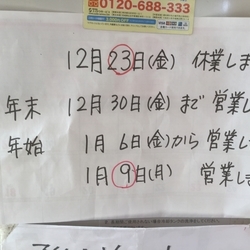 0120-688-333
12月23日(金) 休業しま
年末 12月30日(金)まで 営業し
年始 1月 6日(金)から 営業しま
1月 9日(月) 営業しま